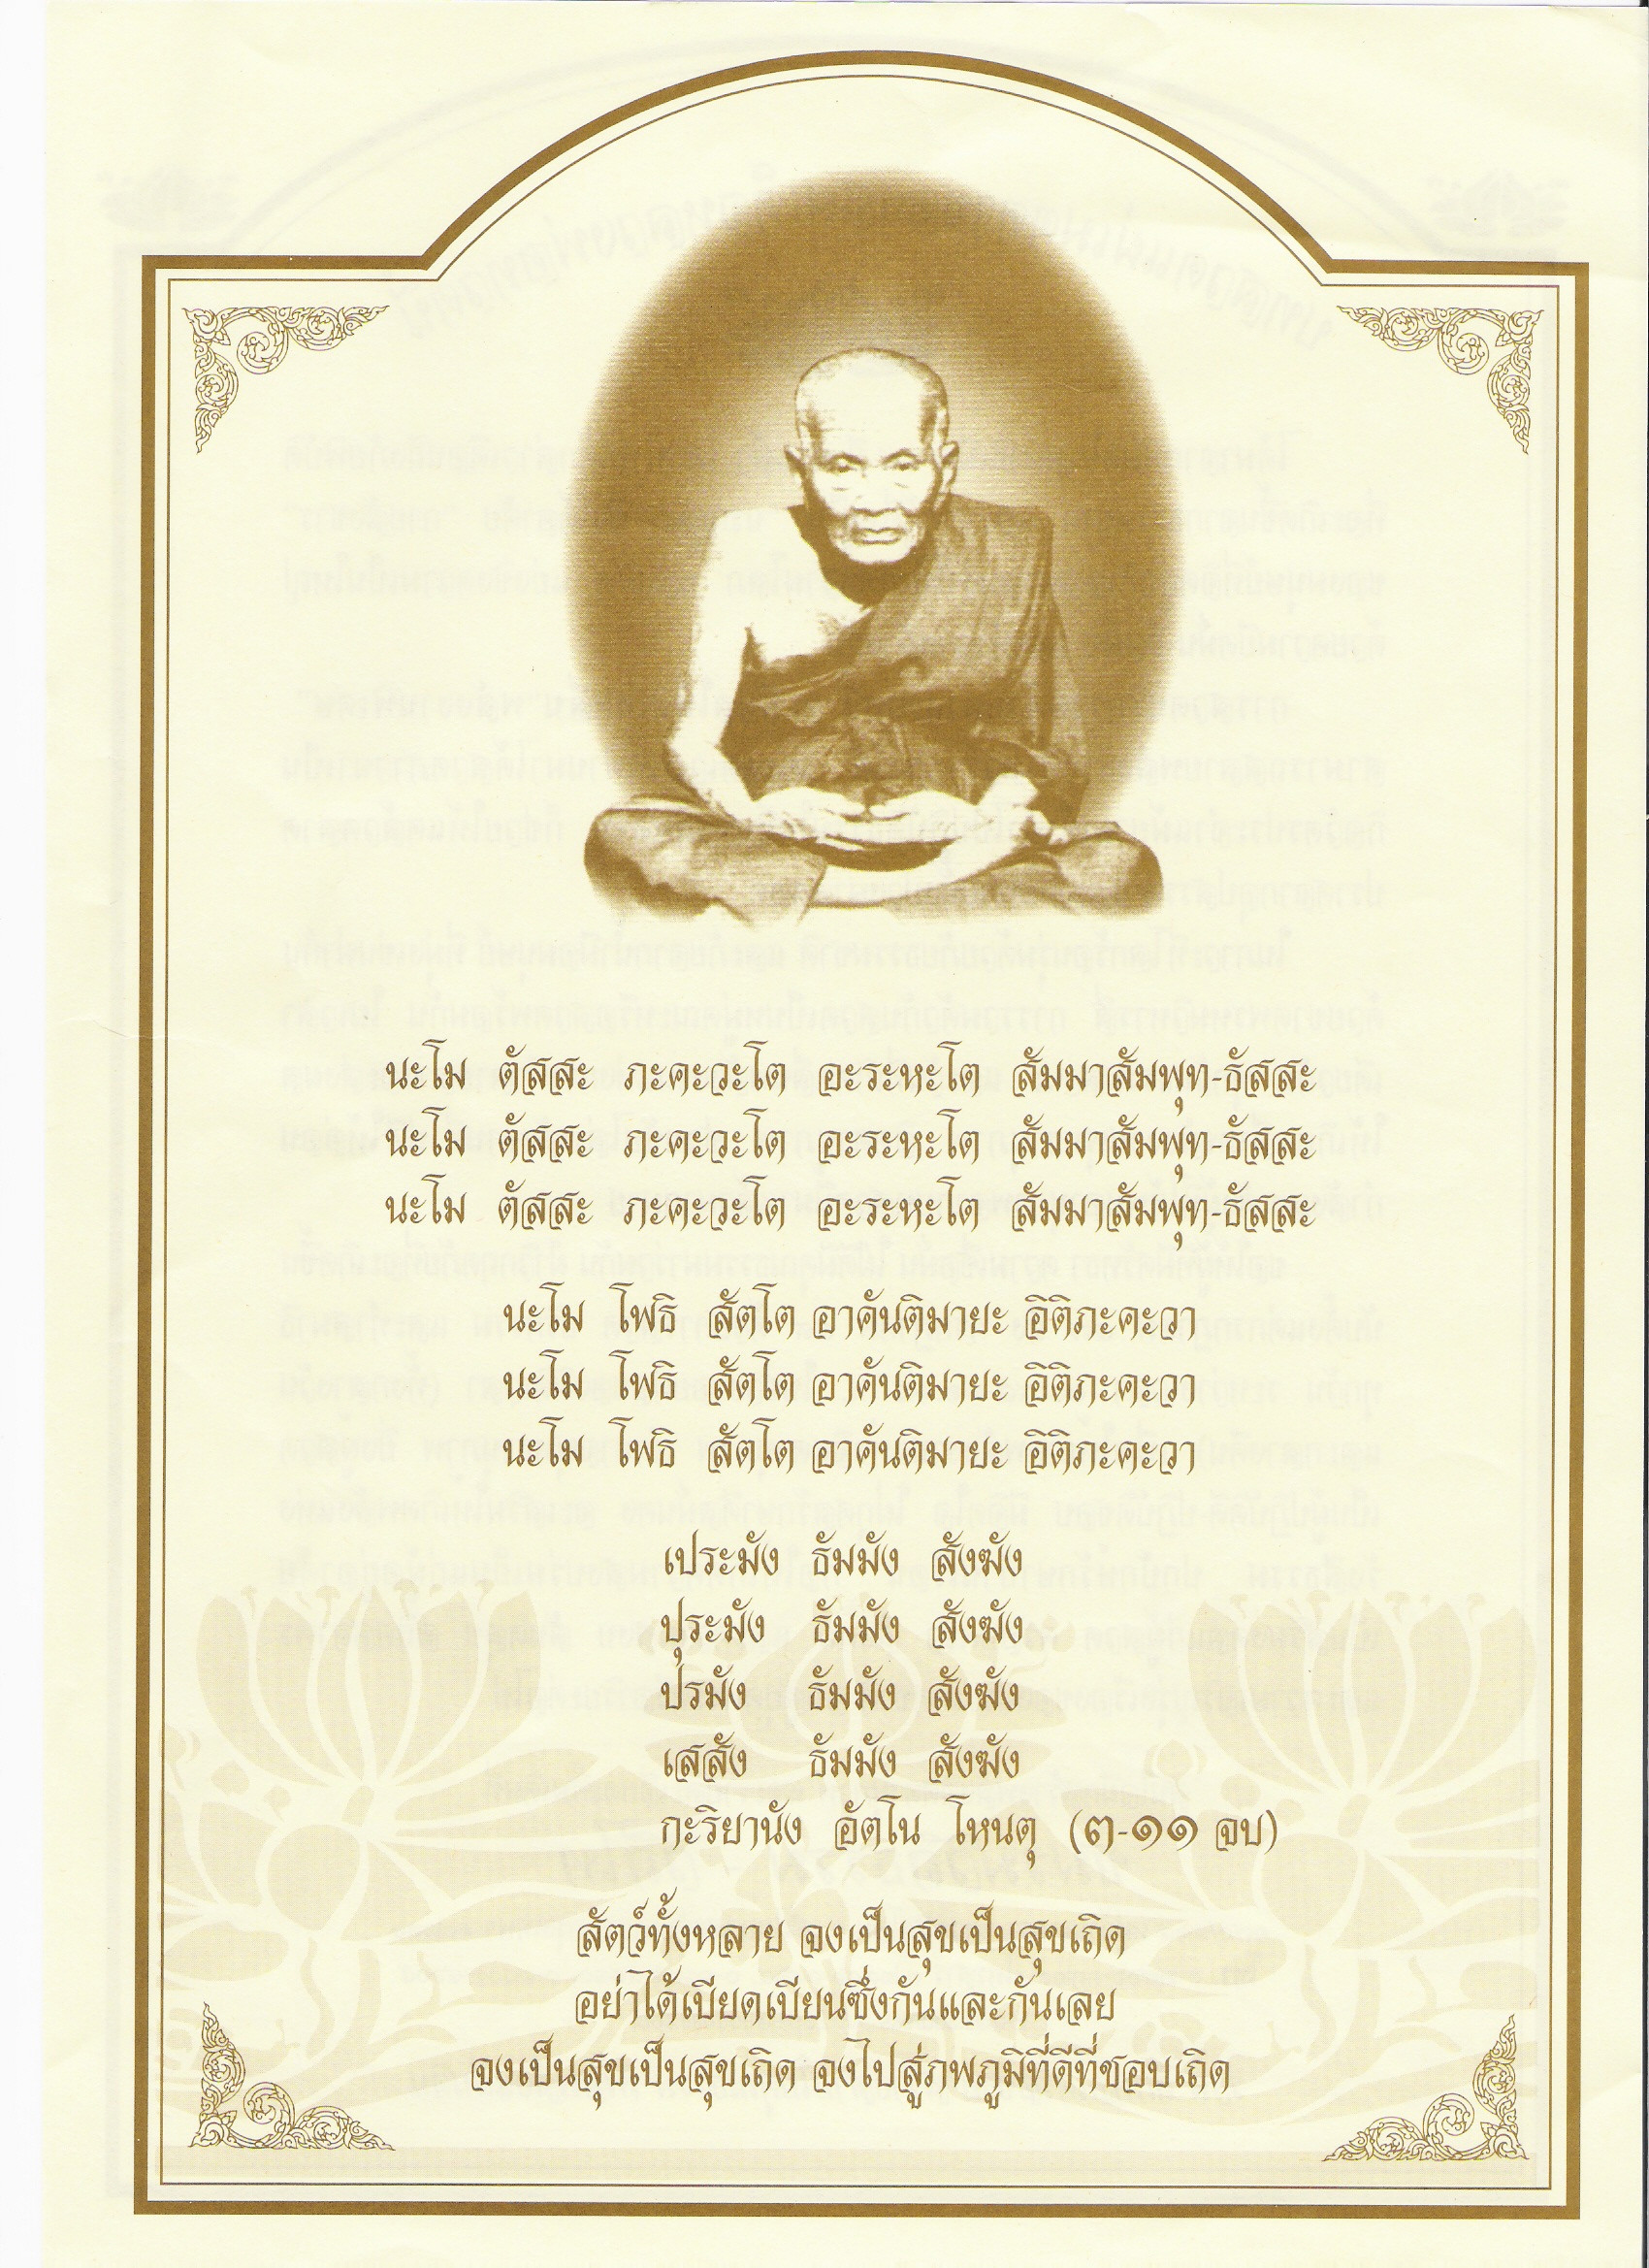 นะโม ตัสสะ ภะคะวะโต อะระหะโต สัมมาสัมพุท-ธัสสะ
นะโม ตัสสะ ภะคะวะโต อะระหะโต สัมมาสัมพุท-ธัสสะ
นะโม ตัสสะ ภะคะวะโต อะระหะโต สัมมาสัมพุท-ธัสสะ
นะโม โพธิ สัตโต อาคันติมายะ อิติภะคะวา
นะโม โพธิ สัตโต อาคันติมายะ อิติภะคะวา
นะโม โพธิ สัตโต อาคันติมายะ อิติภะคะวา
เประมัง ธัมมัง สังฆัง
ปุระมัง ธัมมัง สังฆัง
ปรมัง ธัมมัง สังฆัง
เสสัง ธัมมัง สังฆัง
กะริยานัง อัตโน โหนตุ (๓-๑๑ จบ)
สัตว์ทั้งหลาย จงเป็นสุขเป็นสุขเถิด
อย่าได้เบียดเบียนซึ่งกันและกันเลย
จงเป็นสุขเป็นสุขเถิด จงไปสู่ภพภูมิที่ดีที่ชอบเถิด